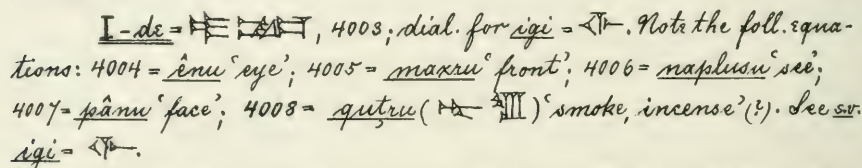 I-de = 𒄿 𒉈, 4003; dial. for igi = 𒅆. Note the foll. equa-
tions: 4004 = ênu 'eye'; 4005 = maxru 'front'; 4006 = naplusu 'see';
4007 = pânu 'face'; 4008 = quṭru ( ) 'smoke, incense' (?). See s.v.
igi = 𒅆.